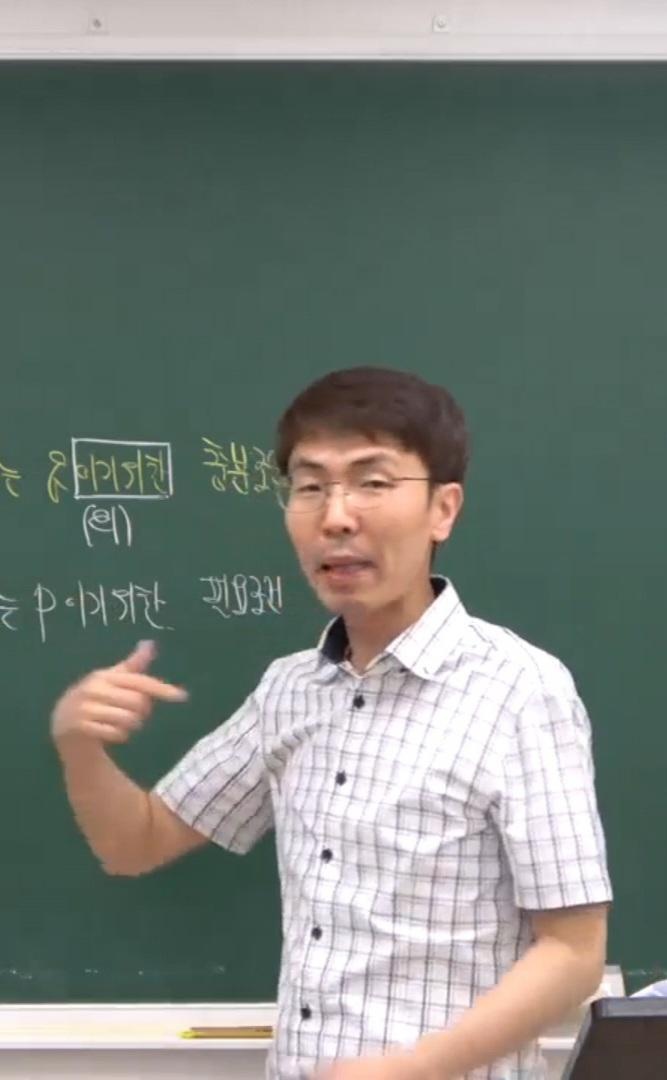 는 q이기 위한 충분조
(의)
는 p이기 위한 필요조건